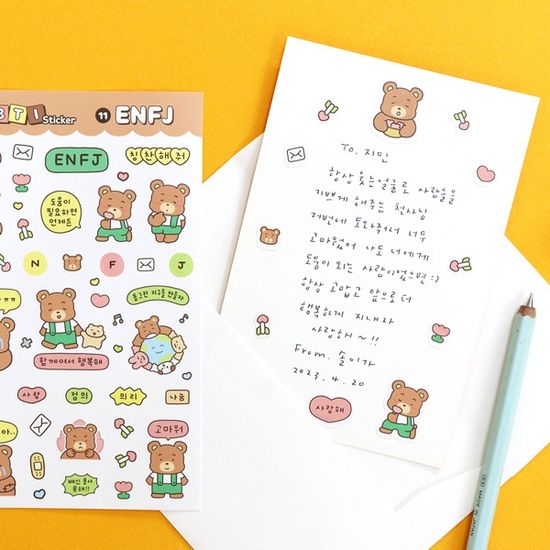 BTI Sticker
11 ENFJ
ENFJ
칭찬해 줘
도움이
필요하면
언제든
N
F
J
둥그런 지구를 만들자
함께여서 행복해
사랑
정의
의리
나눔
고마워
배신 용서
못해!!
To. 지민
항상 웃는 얼굴로 사람들을
기쁘게 해주는 천사님
저번에 도와줘서 너무
고마웠어 나도 너에게
도움이 되는 사람이었으면 :)
항상 고맙고 앞으로 더
행복하게 지내자
사랑해~!!
From. 솔이가
2023. 4. 20
사랑해
MADE IN JAPAN